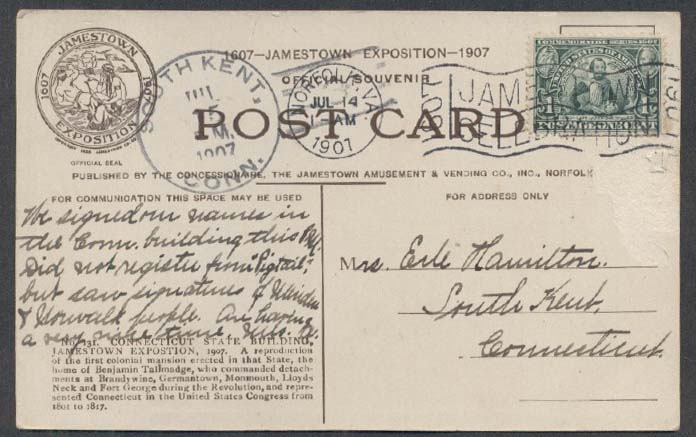 JAMESTOWN
1607 1907
EXPOSITION
OFFICIAL SEAL
1607—JAMESTOWN EXPOSITION—1907
OFFICIAL SOUVENIR
POST CARD
SOUTH KENT,
1907
CONN.
NORFOLK, VA.
JUL 14
AM
1907
1607
JAMESTOWN
CELEBRATION
1907
PUBLISHED BY THE CONCESSIONAIRE, THE JAMESTOWN AMUSEMENT & VENDING CO., INC., NORFOLK
FOR COMMUNICATION THIS SPACE MAY BE USED
FOR ADDRESS ONLY
We signed our names in
the Conn. building this
Did not register from "Pigtail,"
but saw signatures of
& Norwalk people. Are having
a very nice time.
Mrs. Erle Hamilton.
South Kent,
Connecticut.
No. 131. CONNECTICUT STATE BUILDING,
JAMESTOWN EXPOSTION, 1907. A reproduction
of the first colonial mansion erected in that State, the
home of Benjamin Tallmadge, who commanded detach-
ments at Brandywine, Germantown, Monmouth, Lloyds
Neck and Fort George during the Revolution, and repre-
sented Connecticut in the United States Congress from
1801 to 1817.